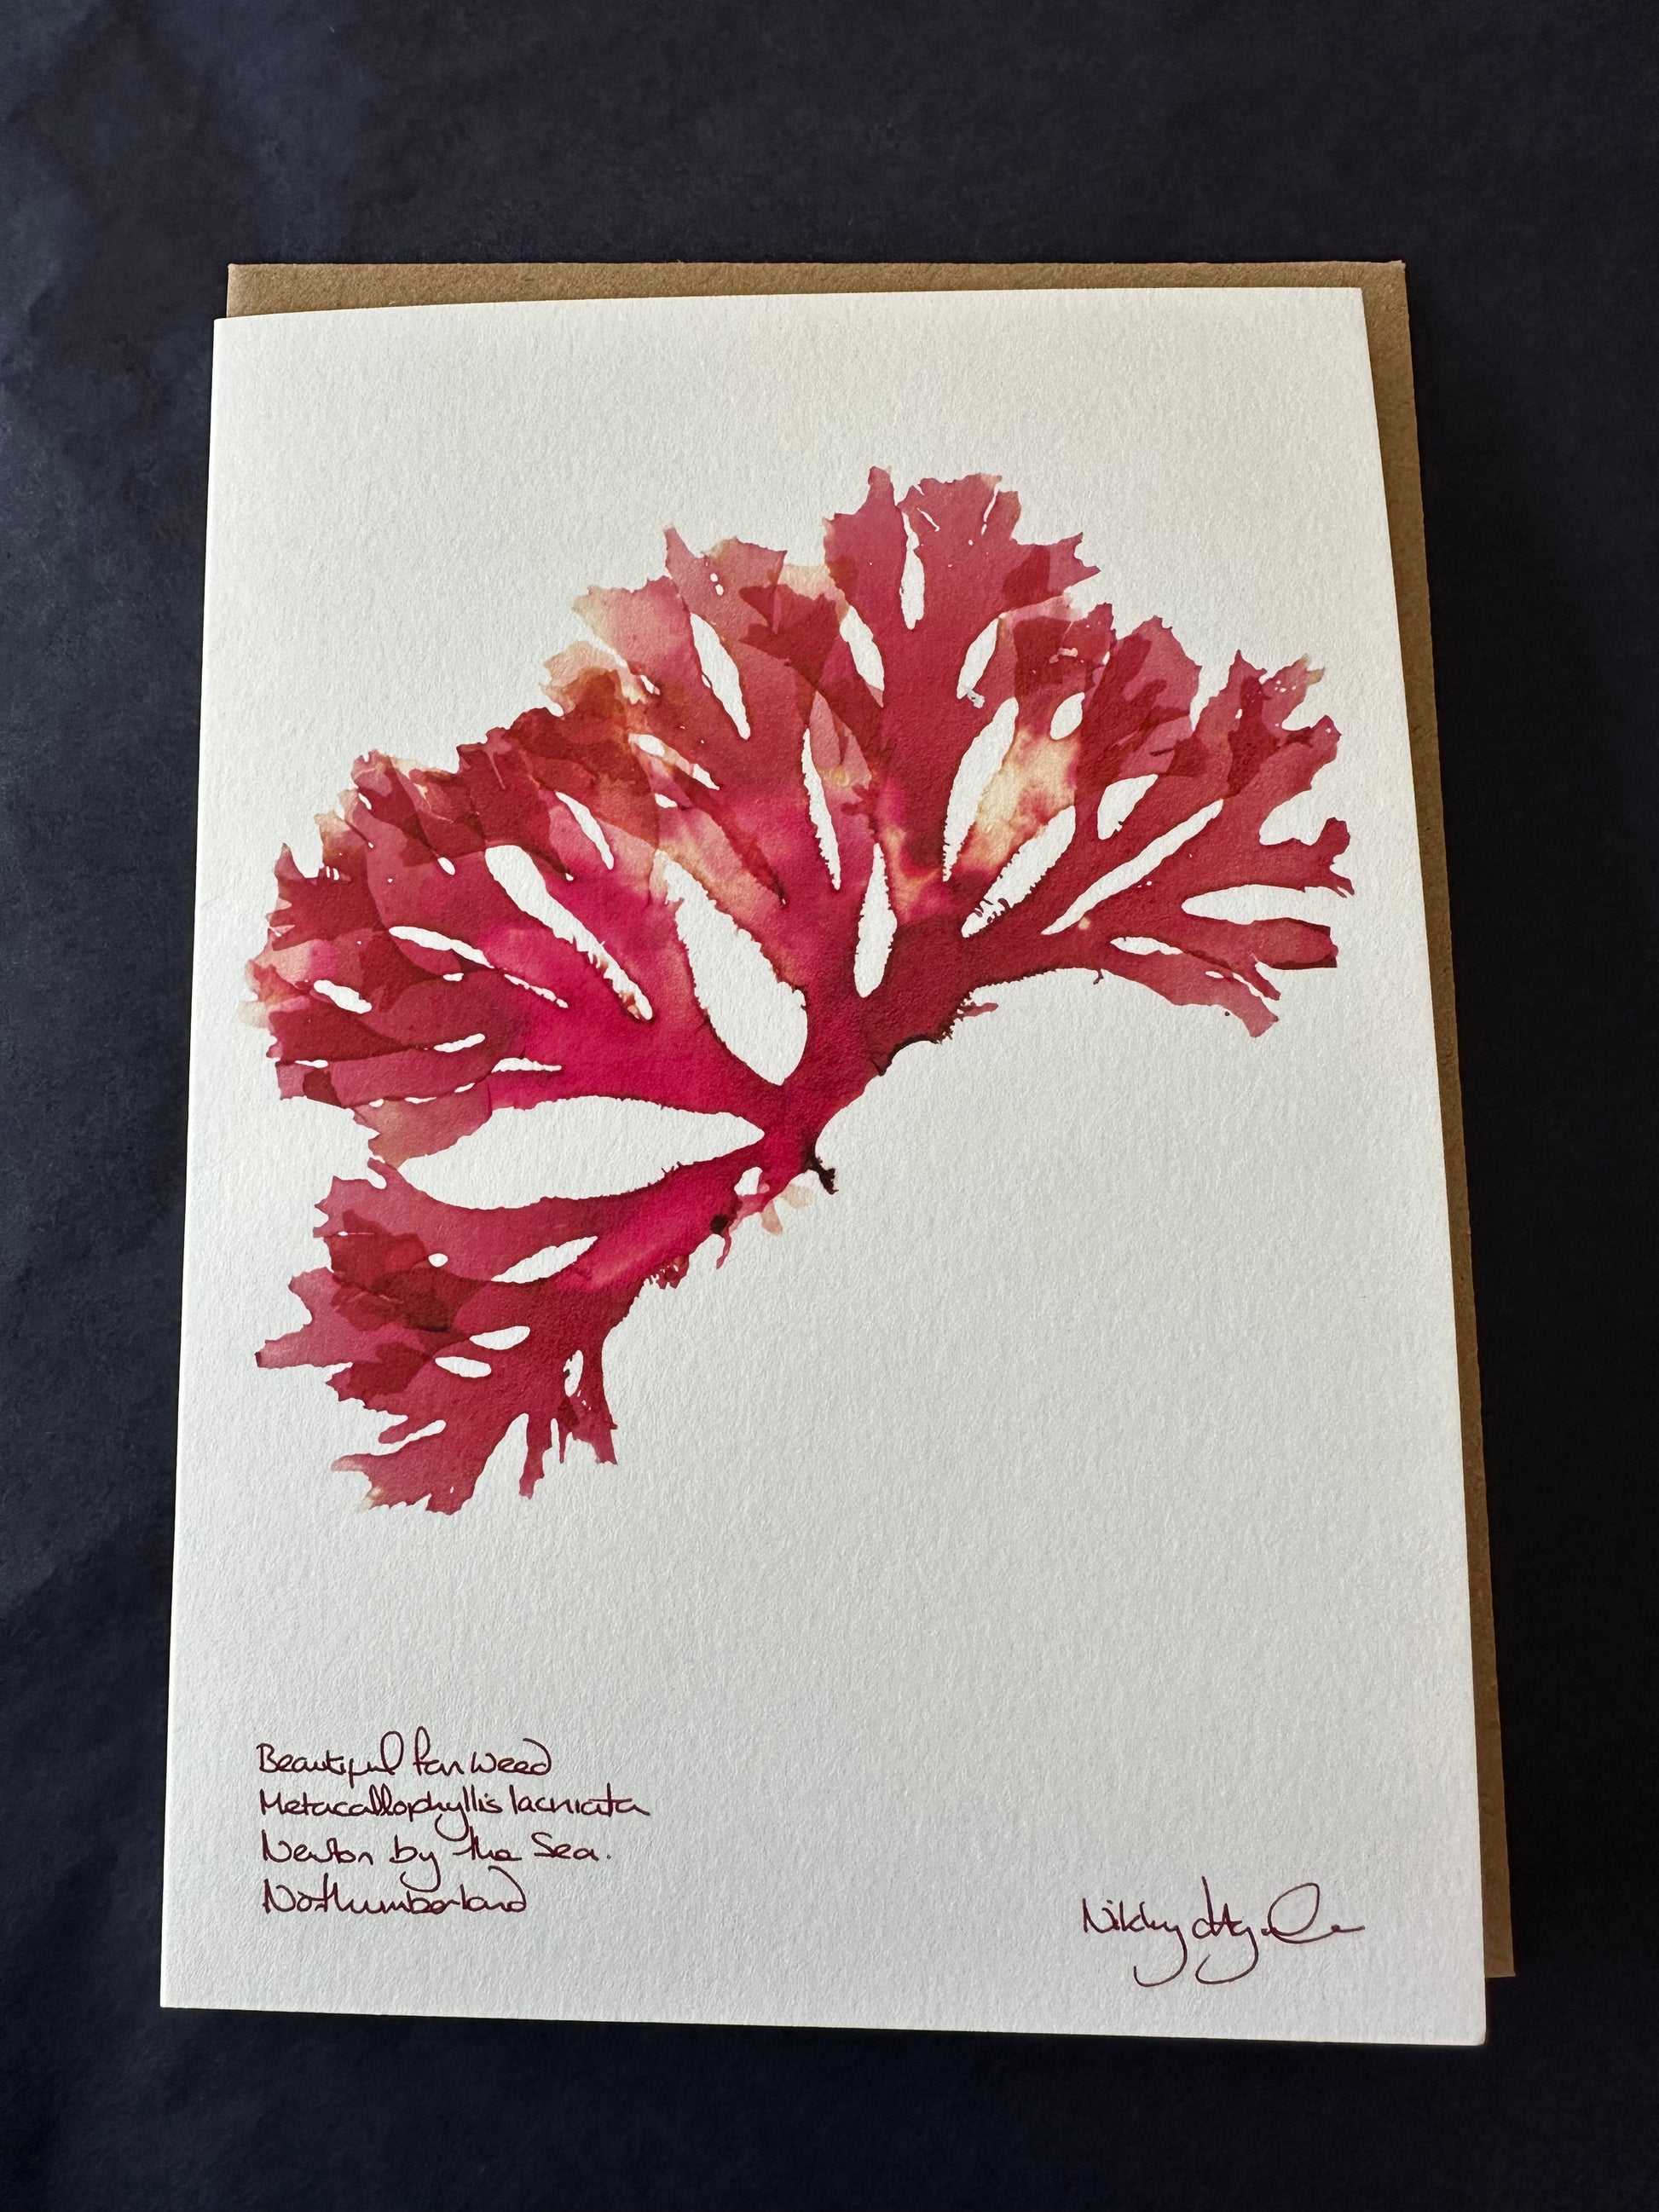 Beautiful fan weed
Metacallophyllis lacniata
Newton by the Sea.
Northumberland
Nikky